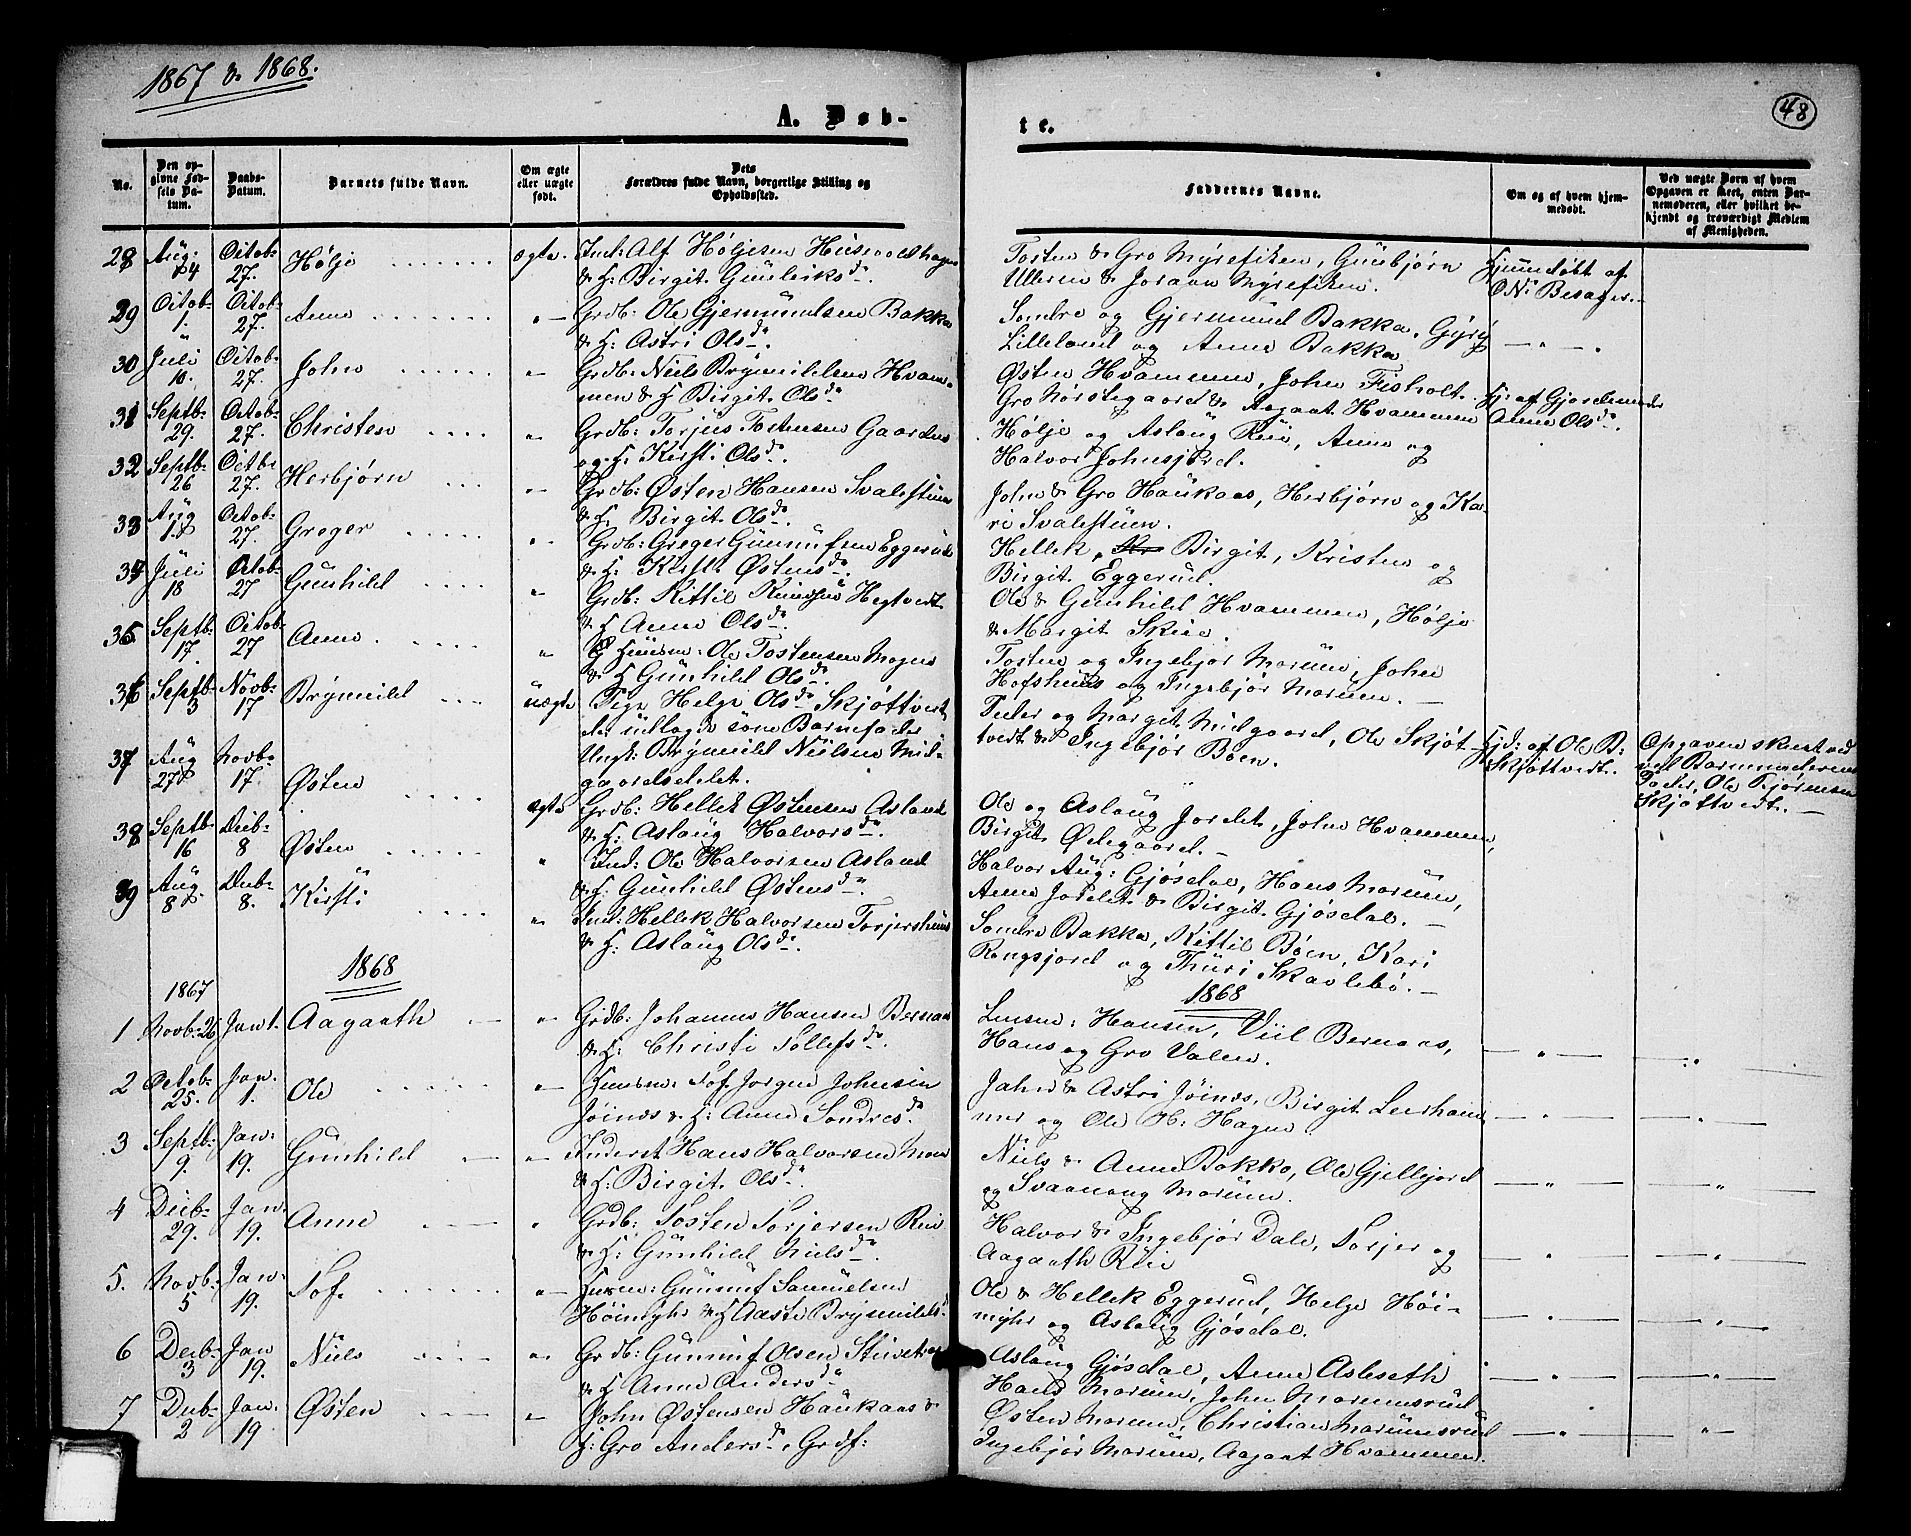 1867 & 1868.
48
A. Døb-
te.
No.
Den opgivne Fødsels Datum.
Daabs-Datum.
Barnets fulde Navn.
Om ægte eller uægte født.
Dets Forældres fulde Navn, borgerlige Stilling og Opholdssted.
Faddernes Navne.
Om og af hvem hjemmedøbt.
Ved uægte Børn af hvem Opgaven er skeet, enten Barnemoderen, eller hvilket bekjendt og troværdigt Medlem af Menigheden.
28 Aug: 14 Octob: 27. Hølje ægte. Ind: Alf Høljesen
& H: Birgit Gunleiksdr.
Tosten & Gro Myrefiken, Gunbjørn
Ulleren & Joraan Myrefiken.
Hjemdøbt af
29 Octob: 1. Octob: 27. Anne " Grdb: Ole Gjermundsen Bakka
& H: Astri Olsdr.
Sondre og Gjermund Bakka, Gyrÿ
Lilleland og Anne Bakka
30 Juli 10. Octob: 27. John " Grdb: Niels Brynildsen Hvam-
men & H Birgit Olsdr
Østen Hvammen, John Fisholt.
Gro Norstegaard & Aagaat Hvammen
Hj: af Gjordemoder
Anne Olsdr.
31 Septb: 29. Octob: 27. Christen " Grdb: Torjus Tostensen Gaarden
og H. Kirsti Olsdr.
Hølje og Aslaug Rue, Anne og
Halvor Johnsjord.
32 Septb: 26 Octb: 27. Herbjørn " Grdb: Østen Hansen Svalestuen
& H. Birgit Olsdr.
John & Gro Haukaas, Herbjørn og Ka-
ri Svalestuen.
33 Aug Octob: 27. Greger " Grdb: Greger Gunnufsen Eggerud
& H: Kirsti Østensdr.
Hellek, Birgit, Kristen og
Birgit Eggerud.
34 Juli 18 Octob: 27 Gunhild " Grdb: Kittil Knudsen Hegtvedt
& H Anne Olsdr.
Ole & Gunhild Hvammen, Hølje
& Margit Skiie.
35 Septb: 17. Octob: 27 Anne " Huusm: Ole Tostensen Moger
& H Gunhild Olsdr.
Tosten og Ingebjør Moruun, John
Hofshuus og Ingebjør Moruun.
36 Septb: 3 Novb: 17 Brynild uægte Pige Helge Olsdr Skjøttvedt
der udlagde som Barnefader
Ungk: Brynild Nielsen Mid-
gaardseidet.
Peder og Margit Midgaard, Ole Skjøt-
tvedt & Ingebjør Bøen.
Hjd: af Ole B:
Skjøttvedt.
Opgaven skeet ved
ved Barnmoderens
Fader, Ole Bjørnsen
Skjøttvedt.
37 Aug 27 Novb: 17. Østen ægte Grdb: Hellek Østensen Asland
& H: Aslaug Halvorsdr.
Ole og Aslaug Jordet, John Hvammen,
Birgit Ødegaard.
38 Septb: 16 Decb: 8 Østen " Ind: Ole Halvorsen Asland
& H: Gunhild Østensdr.
Halvor Aug: Gjøsdal, Hans Moruun,
Anne Jordet & Birgit Gjøsdal.
39 Aug 8 Decb: 8. Kirsti " Ind: Hellek Halvorsen Torjershuus
& H: Aslaug Olsdr.
Sondre Bakka, Kittil Bøen, Kari
Rongsjord og Thuri Skavlebø.
1868
1868
1867
1 Novb: 26 Jan 1. Aagaath " Grdb: Johannes Hansen Bernaas
& H: Christi Tollefsdr.
Lensm: Hansen, Viil Bernaas,
Hans og Gro Valen.
2 Octob: 25. Jan. 1. Ole " Huusm: Tof. Jorgen Johnsen
Jøinæs & H: Anne Sondresdr
Jahn & Astri Jøinæs, Birgit Leerham-
mer og Ole H: Hagen.
3 Septb: 9. Jan: 19. Gunhild " Inderst Hans Halvorsen Moen
& H: Birgit Olsdr.
Niels & Anne Bakka, Ole Gjellejord
og Svanaug Moruun.
4 Decb: 29. Jan: 19. Anne " Grdb: Tosten Torjersen Rue
& H: Gunhild Nielsdr.
Halvor & Ingebjør Dale, Torjer og
Aagaath Rue
5. Novb: 5 Jan: 19. Tof. " Husm: Gunnuf Samuelsen
Høimyhr & H Aaste Brynildsdr.
Ole & Hellek Eggerud, Helge Høi-
myhr og Aslaug Gjøsdal.
6 Decb: 3 Jan 19. Niels " Grdb: Gunnuf Olsen
& H Anne Andersdr
Aslaug Gjøsdal, Anne Asleseth
Hans Moruun, John Moruunsrud
7 Decb: 2 Jan: 19. Østen " John Østensen Haukaas &
H: Gro Andersdr, Grdf:
Østen Moruun, Christian Moruunsrud
Ingebjør Moruun, Aagaat Hvammen.